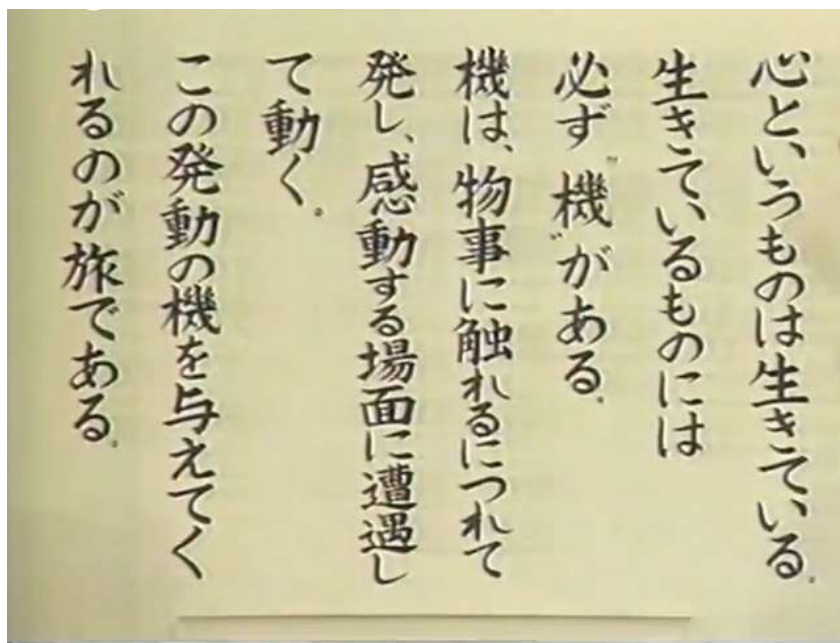 心というものは生きている。
生きているものには
必ず〝機〟がある。
機は、物事に触れるにつれて
発し、感動する場面に遭遇し
て動く。
この発動の機を与えてく
れるのが旅である。